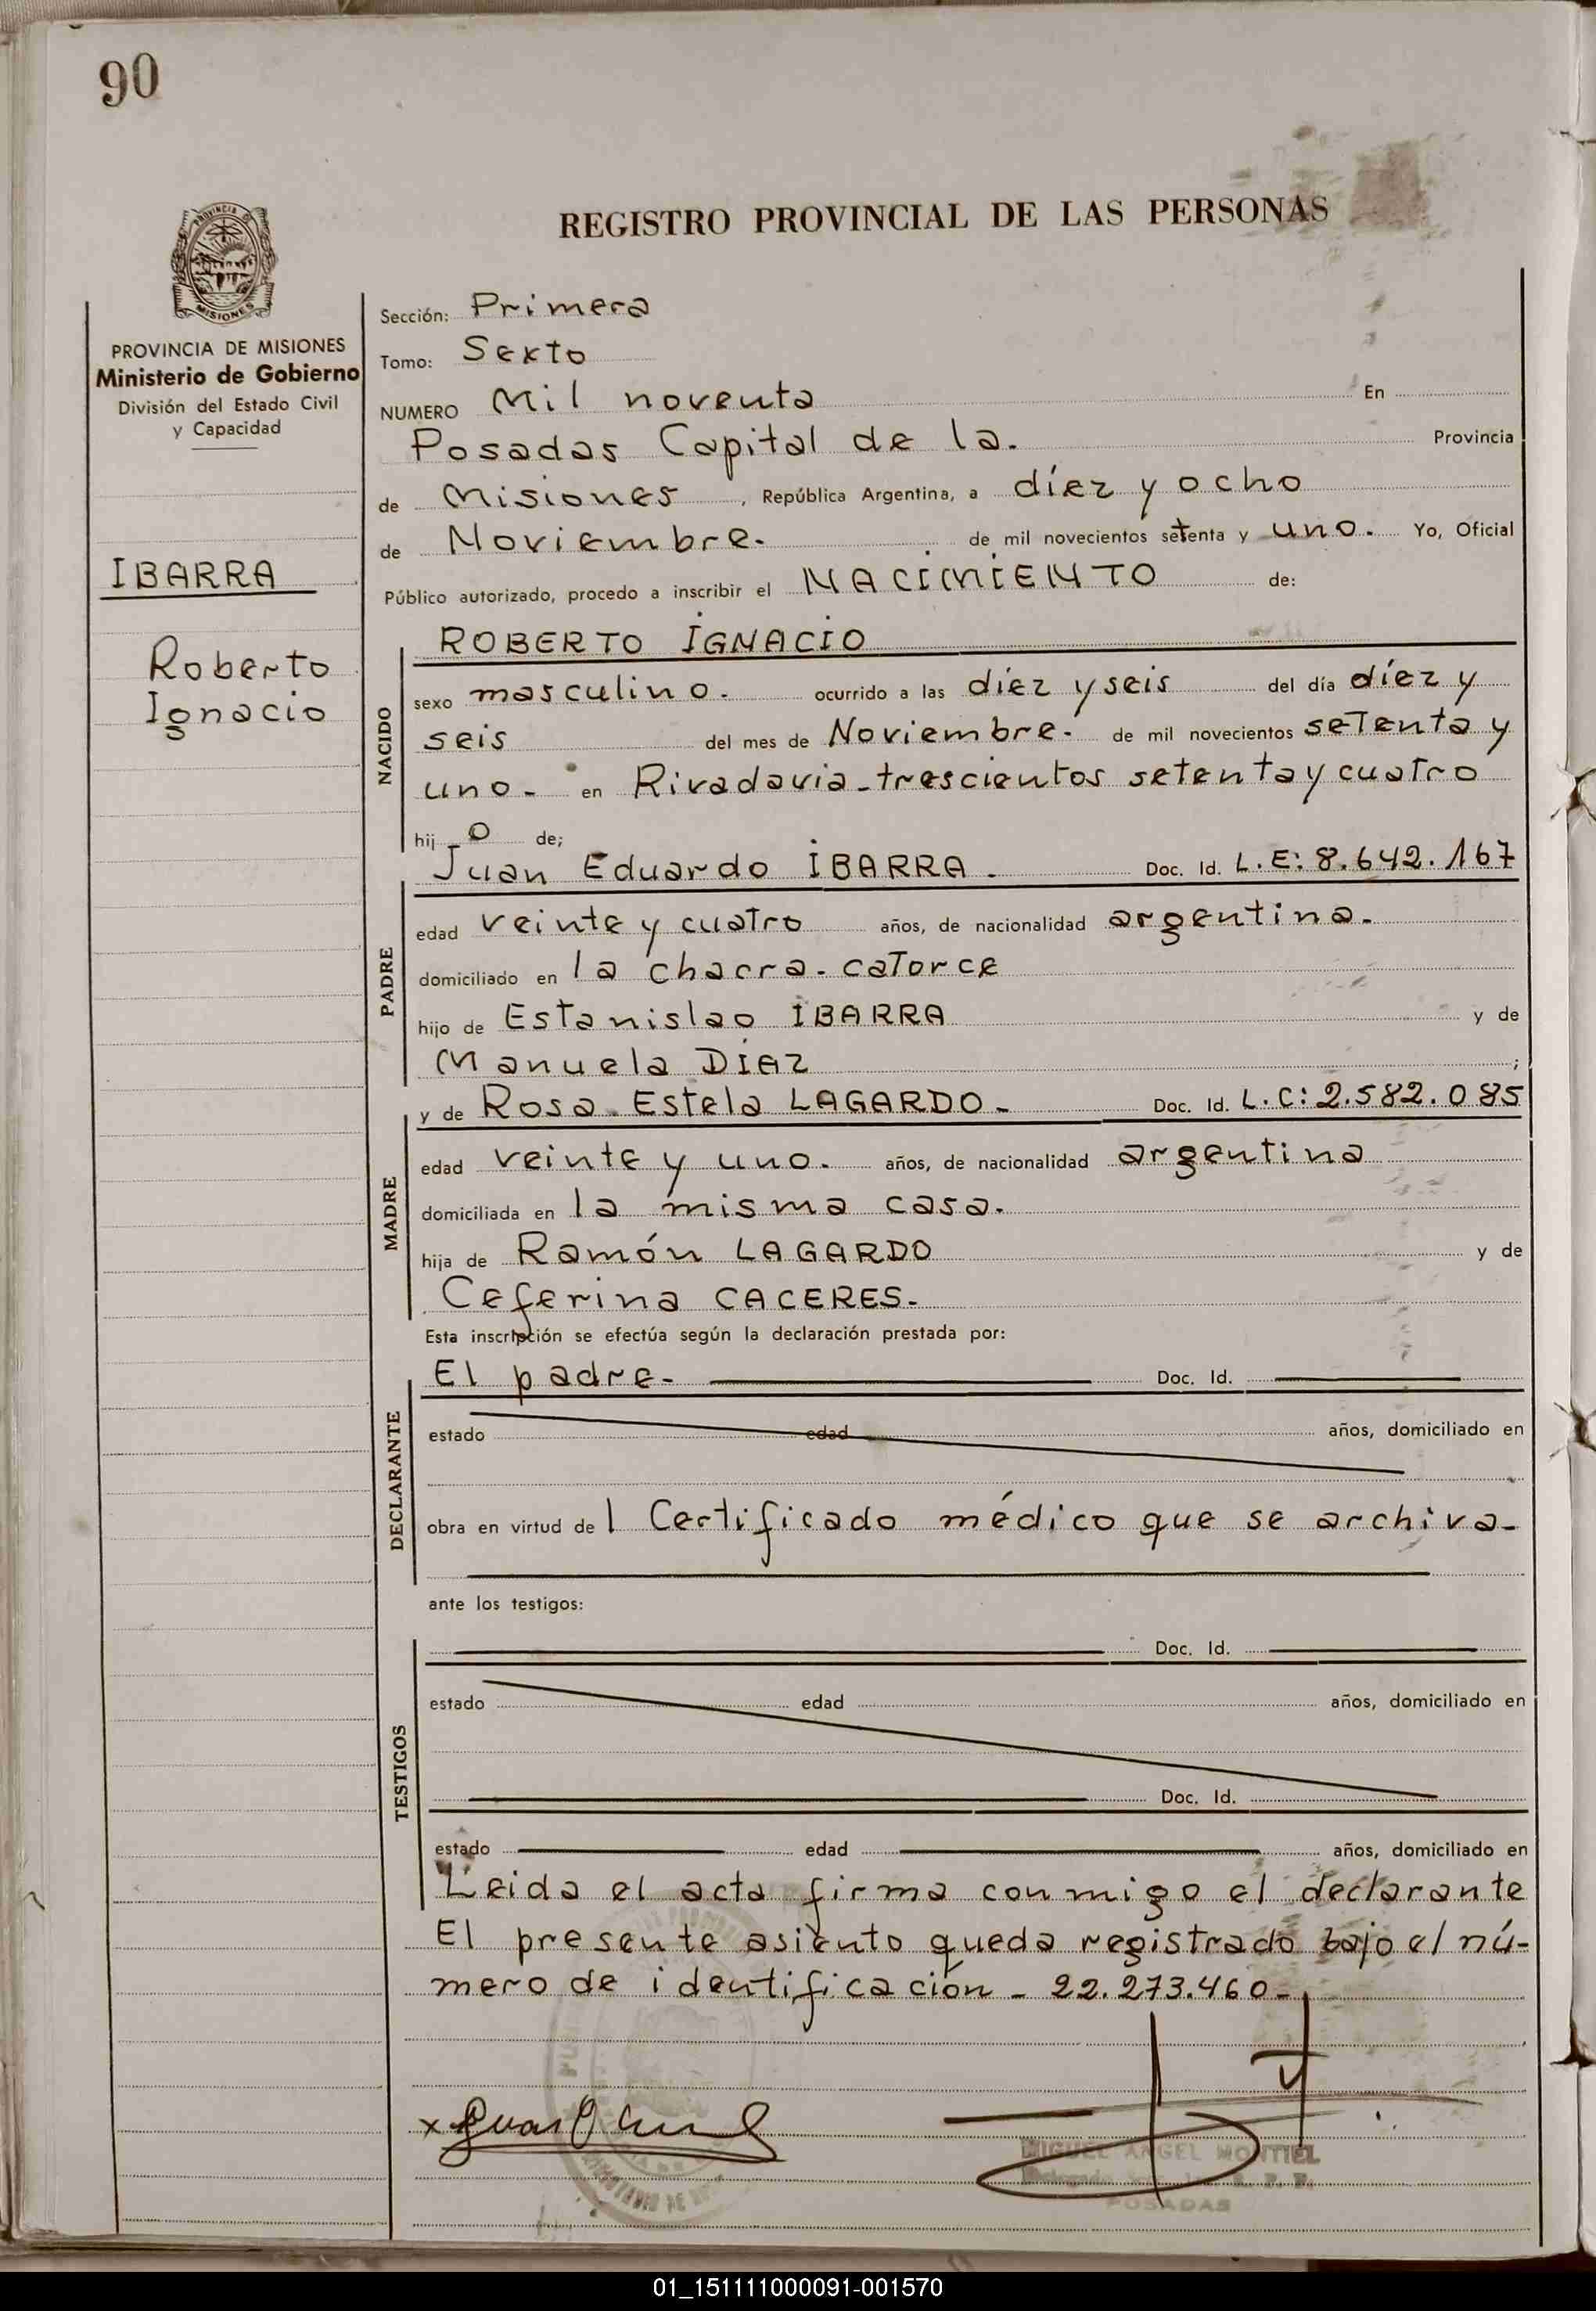 90
REGISTRO PROVINCIAL DE LAS PERSONAS
PROVINCIA DE MISIONES
Ministerio de Gobierno
División del Estado Civil
y Capacidad
IBARRA
Roberto
Ignacio
Sección: Primera
Tomo: Sexto
NUMERO Mil noventa En
Posadas Capital de la. Provincia
de Misiones, República Argentina, a díez y ocho
de Noviembre. de mil novecientos setenta y uno. Yo, Oficial
Público autorizado, procedo a inscribir el NACIMIENTO de:
NACIDO
ROBERTO IGNACIO
sexo masculino. ocurrido a las díez y seis del día díez y
seis del mes de Noviembre. de mil novecientos setenta y
uno- en Rivadavia-trescientos setenta y cuatro
hijo de;
PADRE
Juan Eduardo IBARRA. Doc. Id. L.E: 8.642.167
edad veinte y cuatro años, de nacionalidad argentina.
domiciliado en la chacra-catorce
hijo de Estanislao IBARRA y de
Manuela DIAZ ;
MADRE
y de Rosa Estela LAGARDO- Doc. Id. L.C: 2.582.085
edad veinte y uno. años, de nacionalidad argentina
domiciliada en la misma casa.
hija de Ramón LAGARDO y de
Ceferina CACERES.
Esta inscripción se efectúa según la declaración prestada por:
DECLARANTE
El padre- Doc. Id.
estado edad años, domiciliado en
obra en virtud del Certificado médico que se archiva-
ante los testigos:
TESTIGOS
Doc. Id.
estado edad años, domiciliado en
Doc. Id.
estado edad años, domiciliado en
Leida el acta firma conmigo el declarante
El presente asiento queda registrado bajo el nú-
mero de identificación - 22.273.460-
MIGUEL ANGEL MONTIEL
POSADAS
01_151111000091-001570